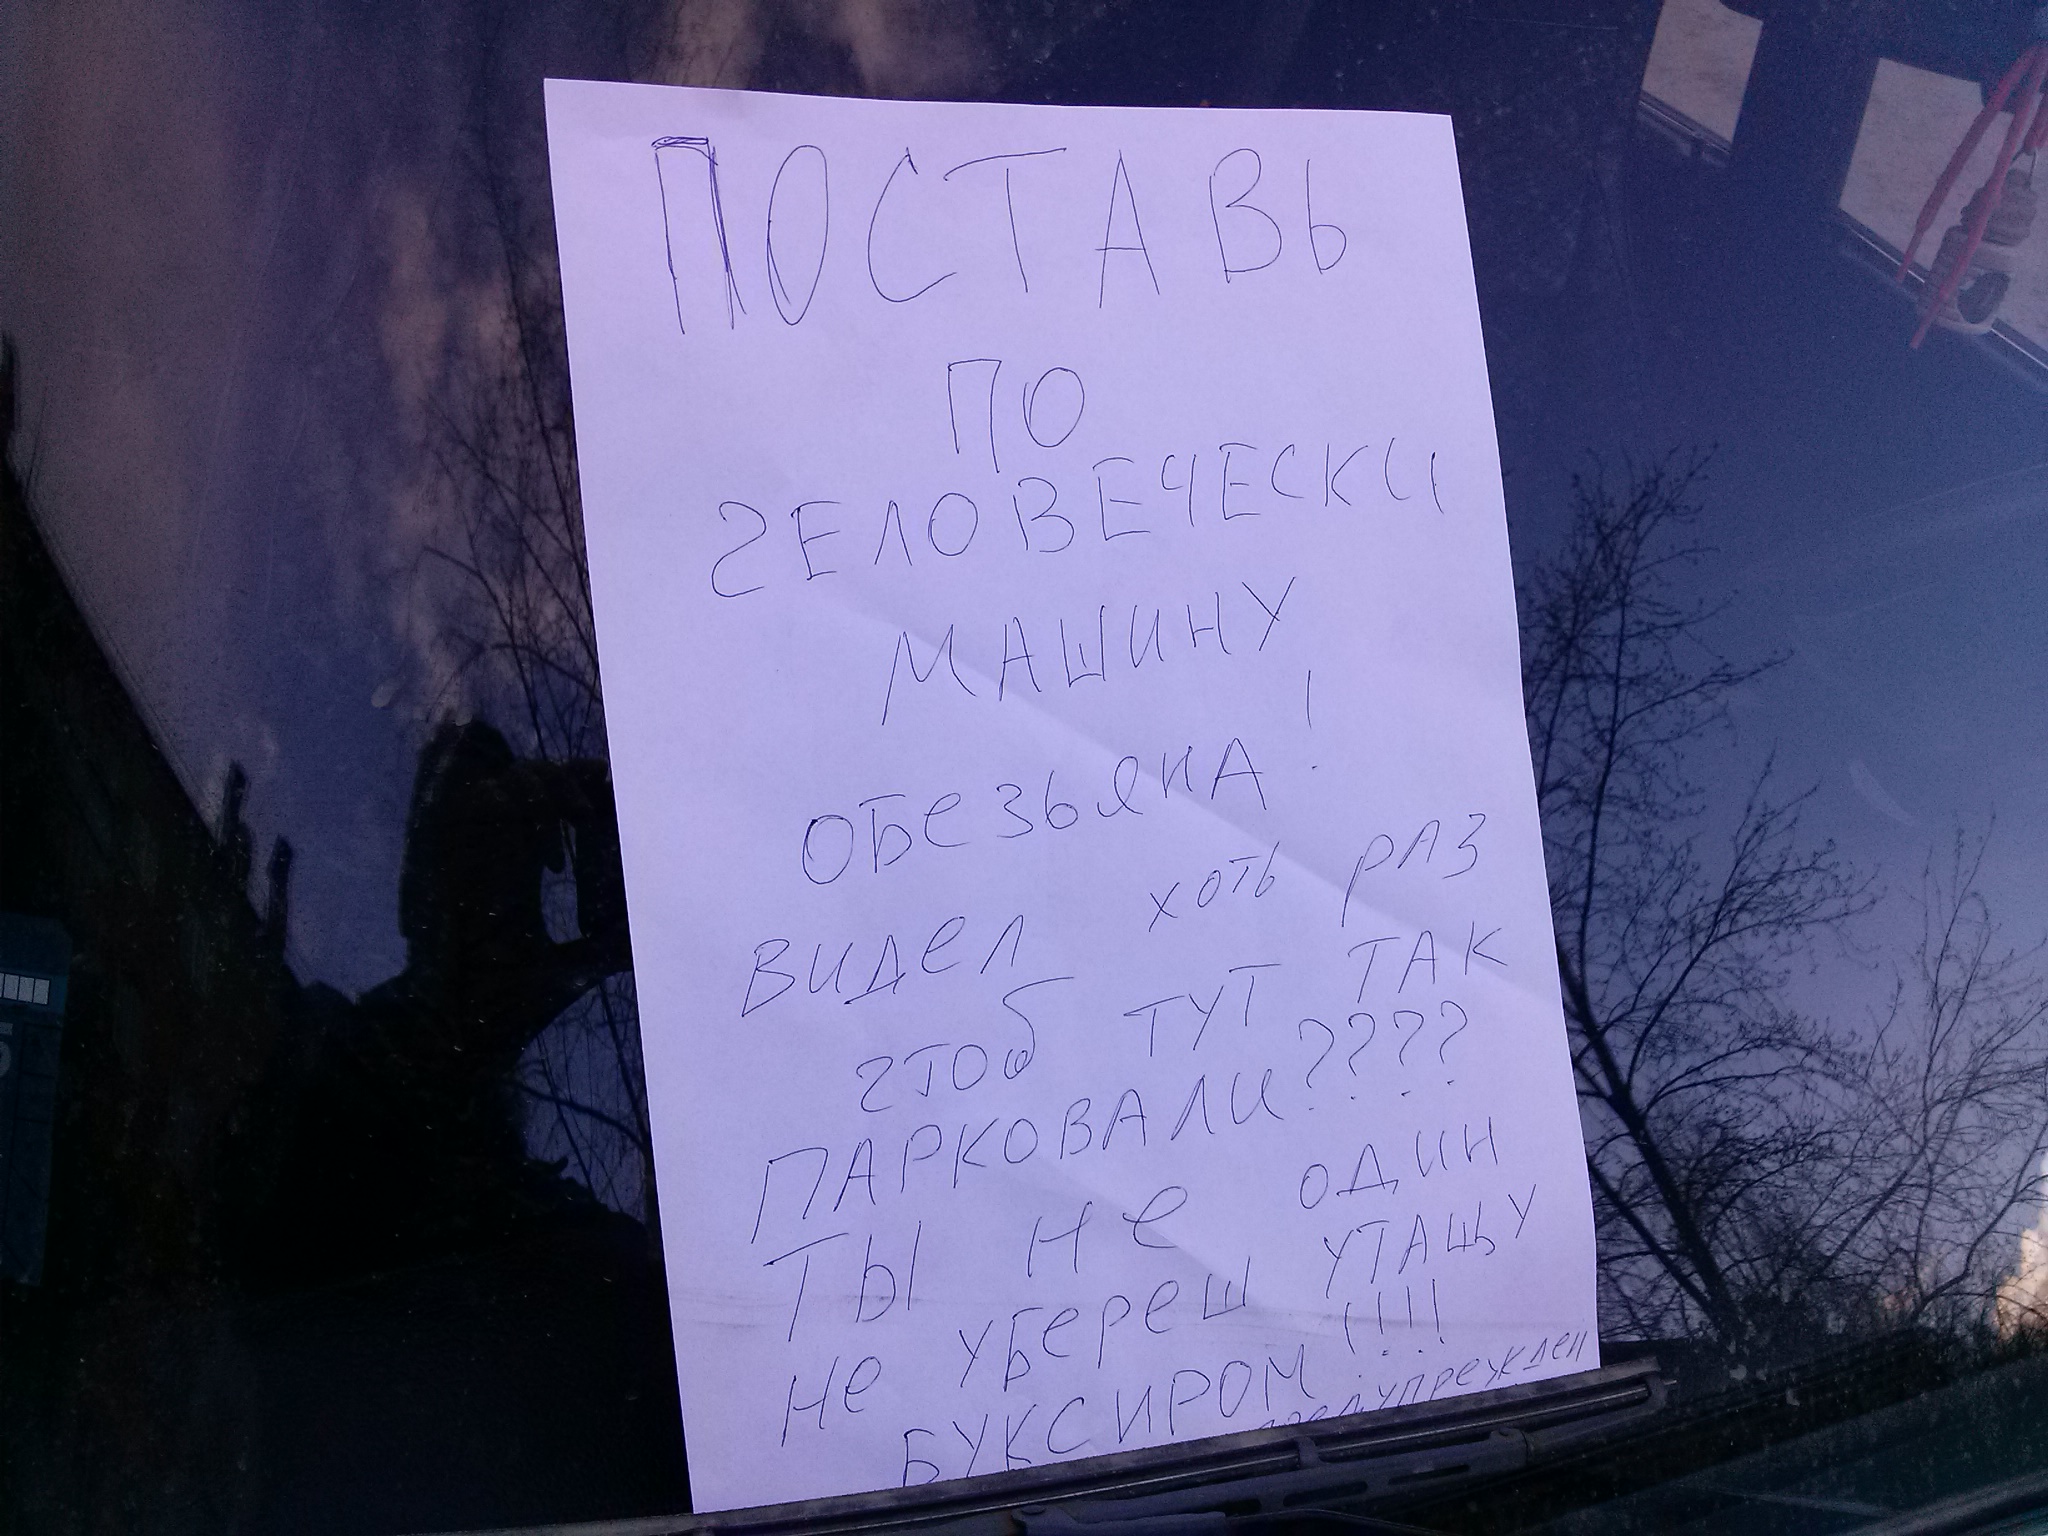 ПОСТАВЬ
ПО
ЧЕЛОВЕЧЕСКИ
МАШИНУ
ОБЕЗЬЯНА!
ВИДЕЛ ХОТЬ РАЗ
ЧТОБ ТУТ ТАК
ПАРКОВАЛИ????
ТЫ НЕ ОДИН
НЕ УБЕРЕШ УТАЩУ
БУКСИРОМ!!!!
предупрежден